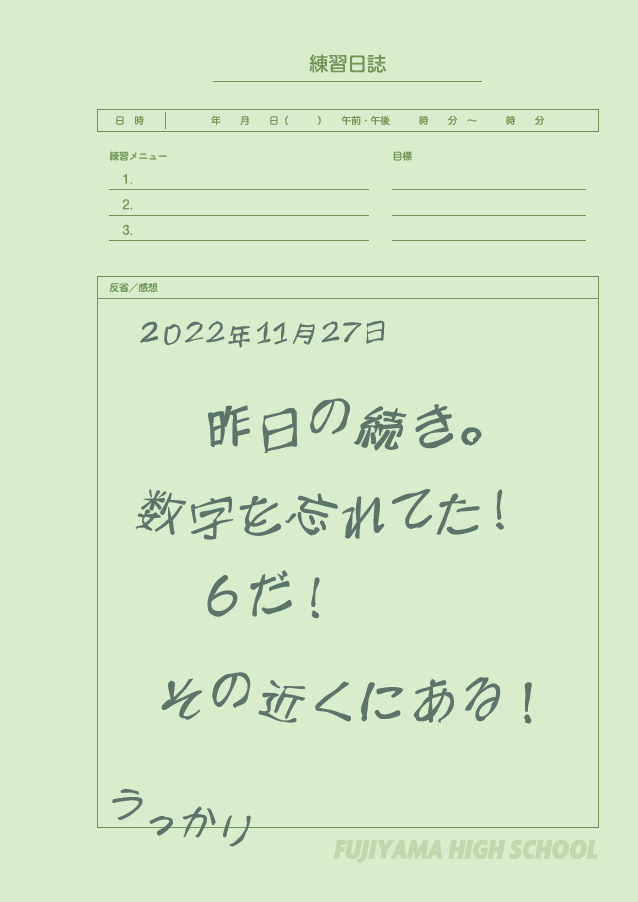 練習日誌
日 時 年 月 日( ) 午前・午後 時 分 ～ 時 分
練習メニュー 目標
1.
2.
3.
反省／感想
2022年11月27日
昨日の続き。
数字を忘れてた！
6だ！
その近くにある！
うっかり
FUJIYAMA HIGH SCHOOL